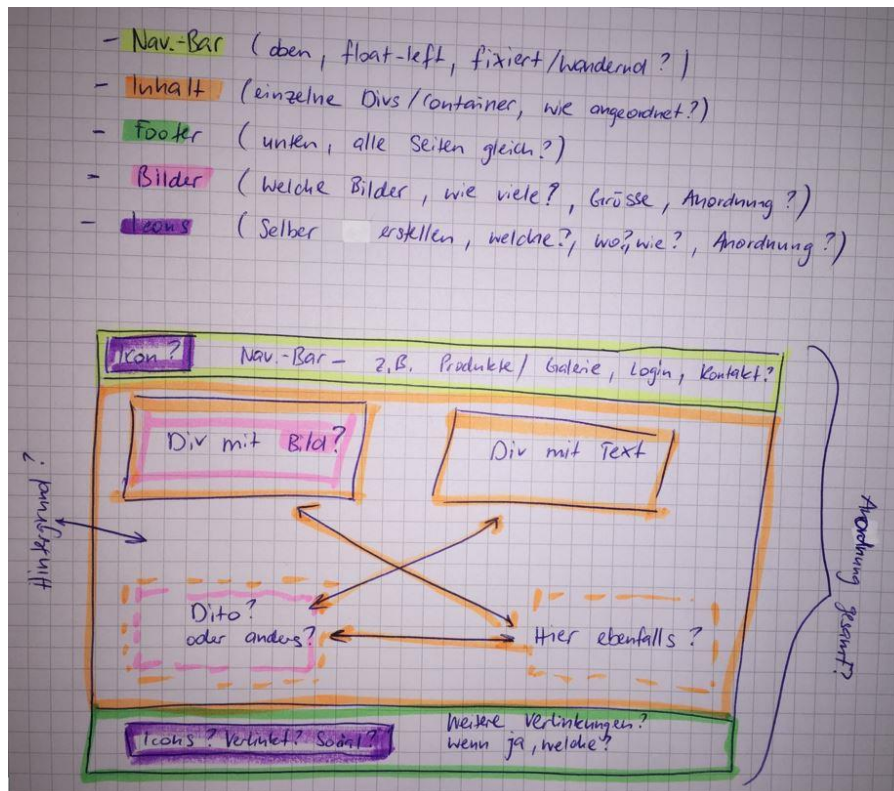 - Nav.-Bar (oben, float-left, fixiert/wandernd?)
- Inhalt (einzelne Divs/Container, wie angeordnet?)
- Footer (unten, alle Seiten gleich?)
- Bilder (Welche Bilder, wie viele?, Grösse, Anordnung?)
- Icons (Selber erstellen, welche?, wo?, wie?, Anordnung?)
Icon? Nav.-Bar - z.B. Produkte/ Galerie, Login, Kontakt?
Div mit Bild?
Div mit Text
Hintergrund?
Anordnung gesamt?
Dito?
oder anders?
Hier ebenfalls?
Icons? Verlinkt? Social?
Weitere Verlinkungen?
wenn ja, welche?